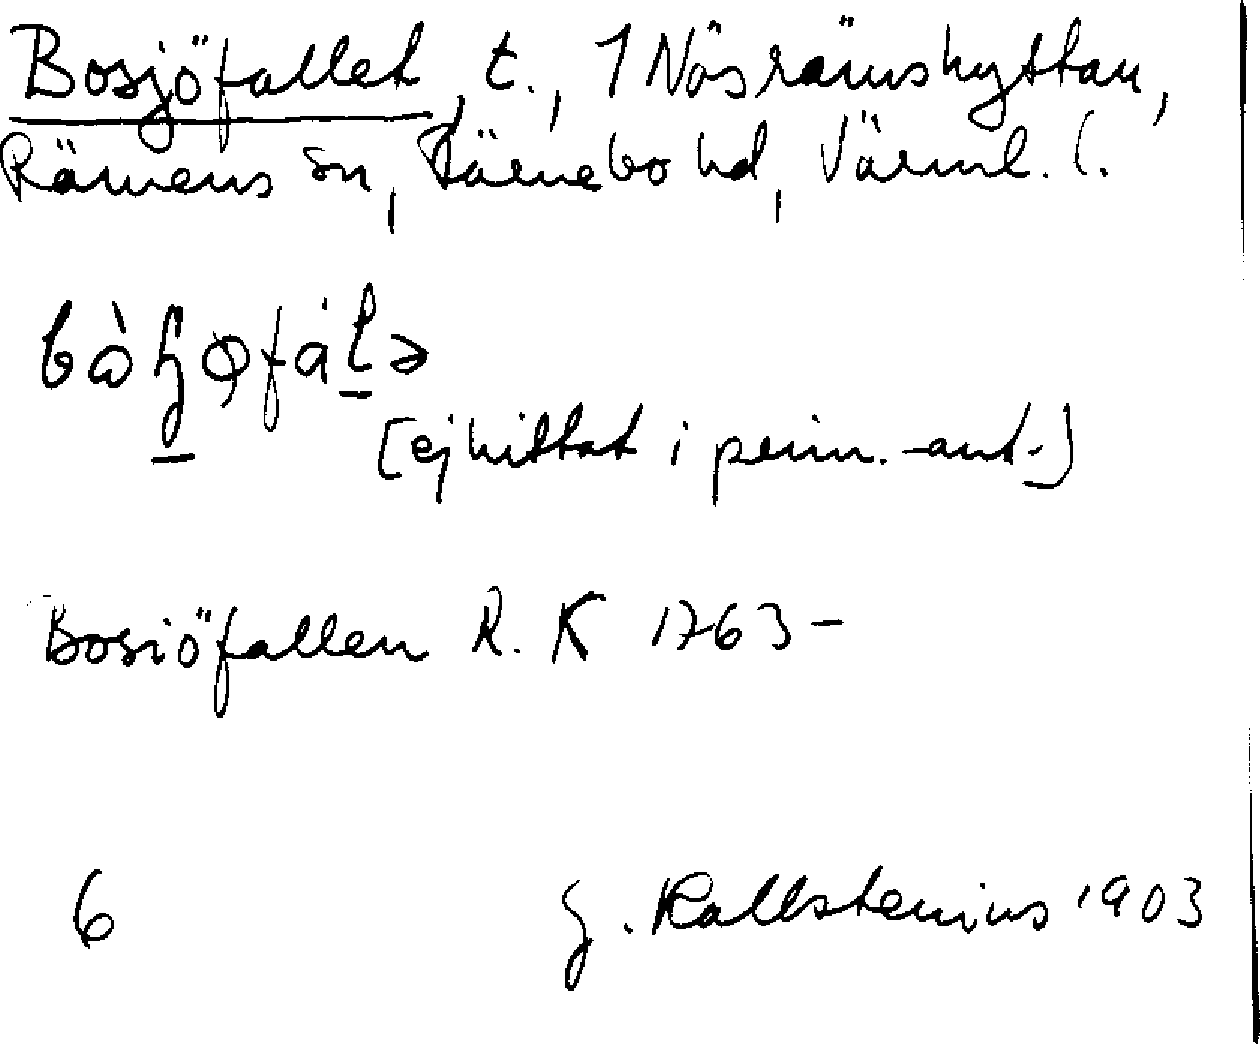 Bosjöfallet, t., 1 Näsrämshyttan,
Rämens sn, Färnebo hd, Värml. l.
[ej hittat i perm.-ant.]
Bosiöfallen R. K 1763-
6 G. Kallstenius 1903